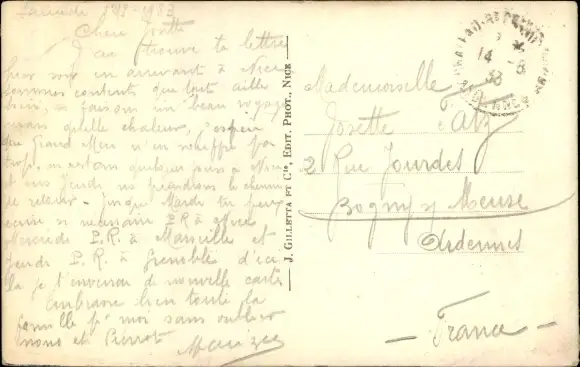 Chère Josette
J'ai trouvé ta lettre
hier soir en arrivant à Nice
sommes contents que tout aille
bien, ns faisons un beau voyage
mais quelle chaleur, j'espère
que Grand Mère n'en souffre pas
trop, ns restons quelques jours à Nice
et ns Jeudi ns prendrons le chemin
de retour - Jusqu'à Mardi tu peux
écrire si nécessaire P.R à Nice
Mercredi P.R. à Marseille et
Jeudi P.R. à Grenoble d'ici
là je t'enverrai de nouvelles cartes
Embrasse bien toute la
famille pr moi sans oublier
nono et Pierrot
J. GILLETTA ET Cie, EDIT. PHOT., NICE
14 - 8
38
Mademoiselle
Josette
2 Rue Jourdes
Bogny s/ Meuse
Ardennes
- France -